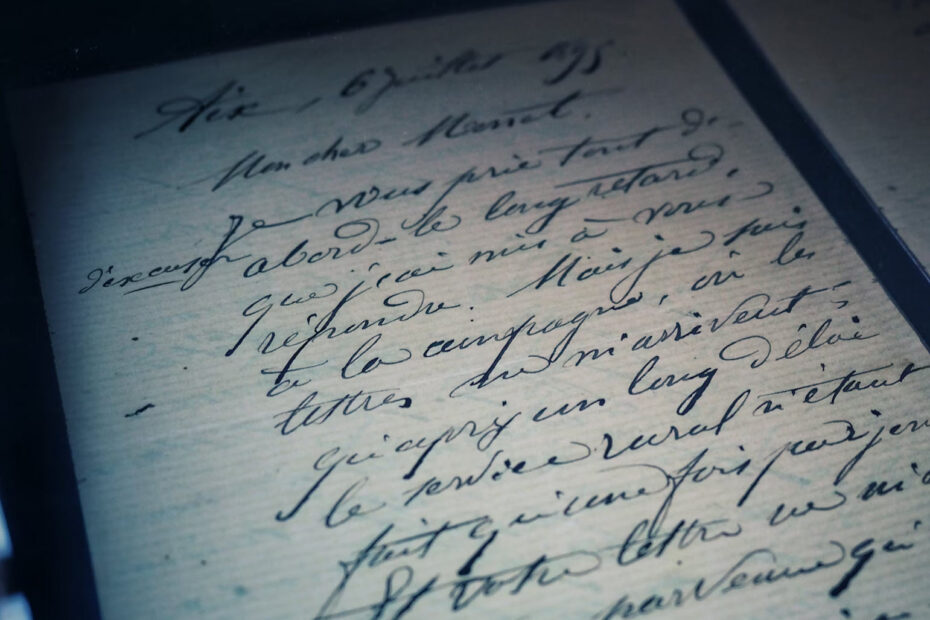 Aix, 6 juillet 1895
Mon cher Monet.
Je vous prie tout d'-
d'excuser
abord le long retard,
que j'ai mis à vous
répondre. Mais je suis
à la campagne, où les
lettres ne m'arrivent
qu'après un long délai
le service rural n'étant
fait qu'une fois par jour
Et votre lettre ne m'
parvenue qu'